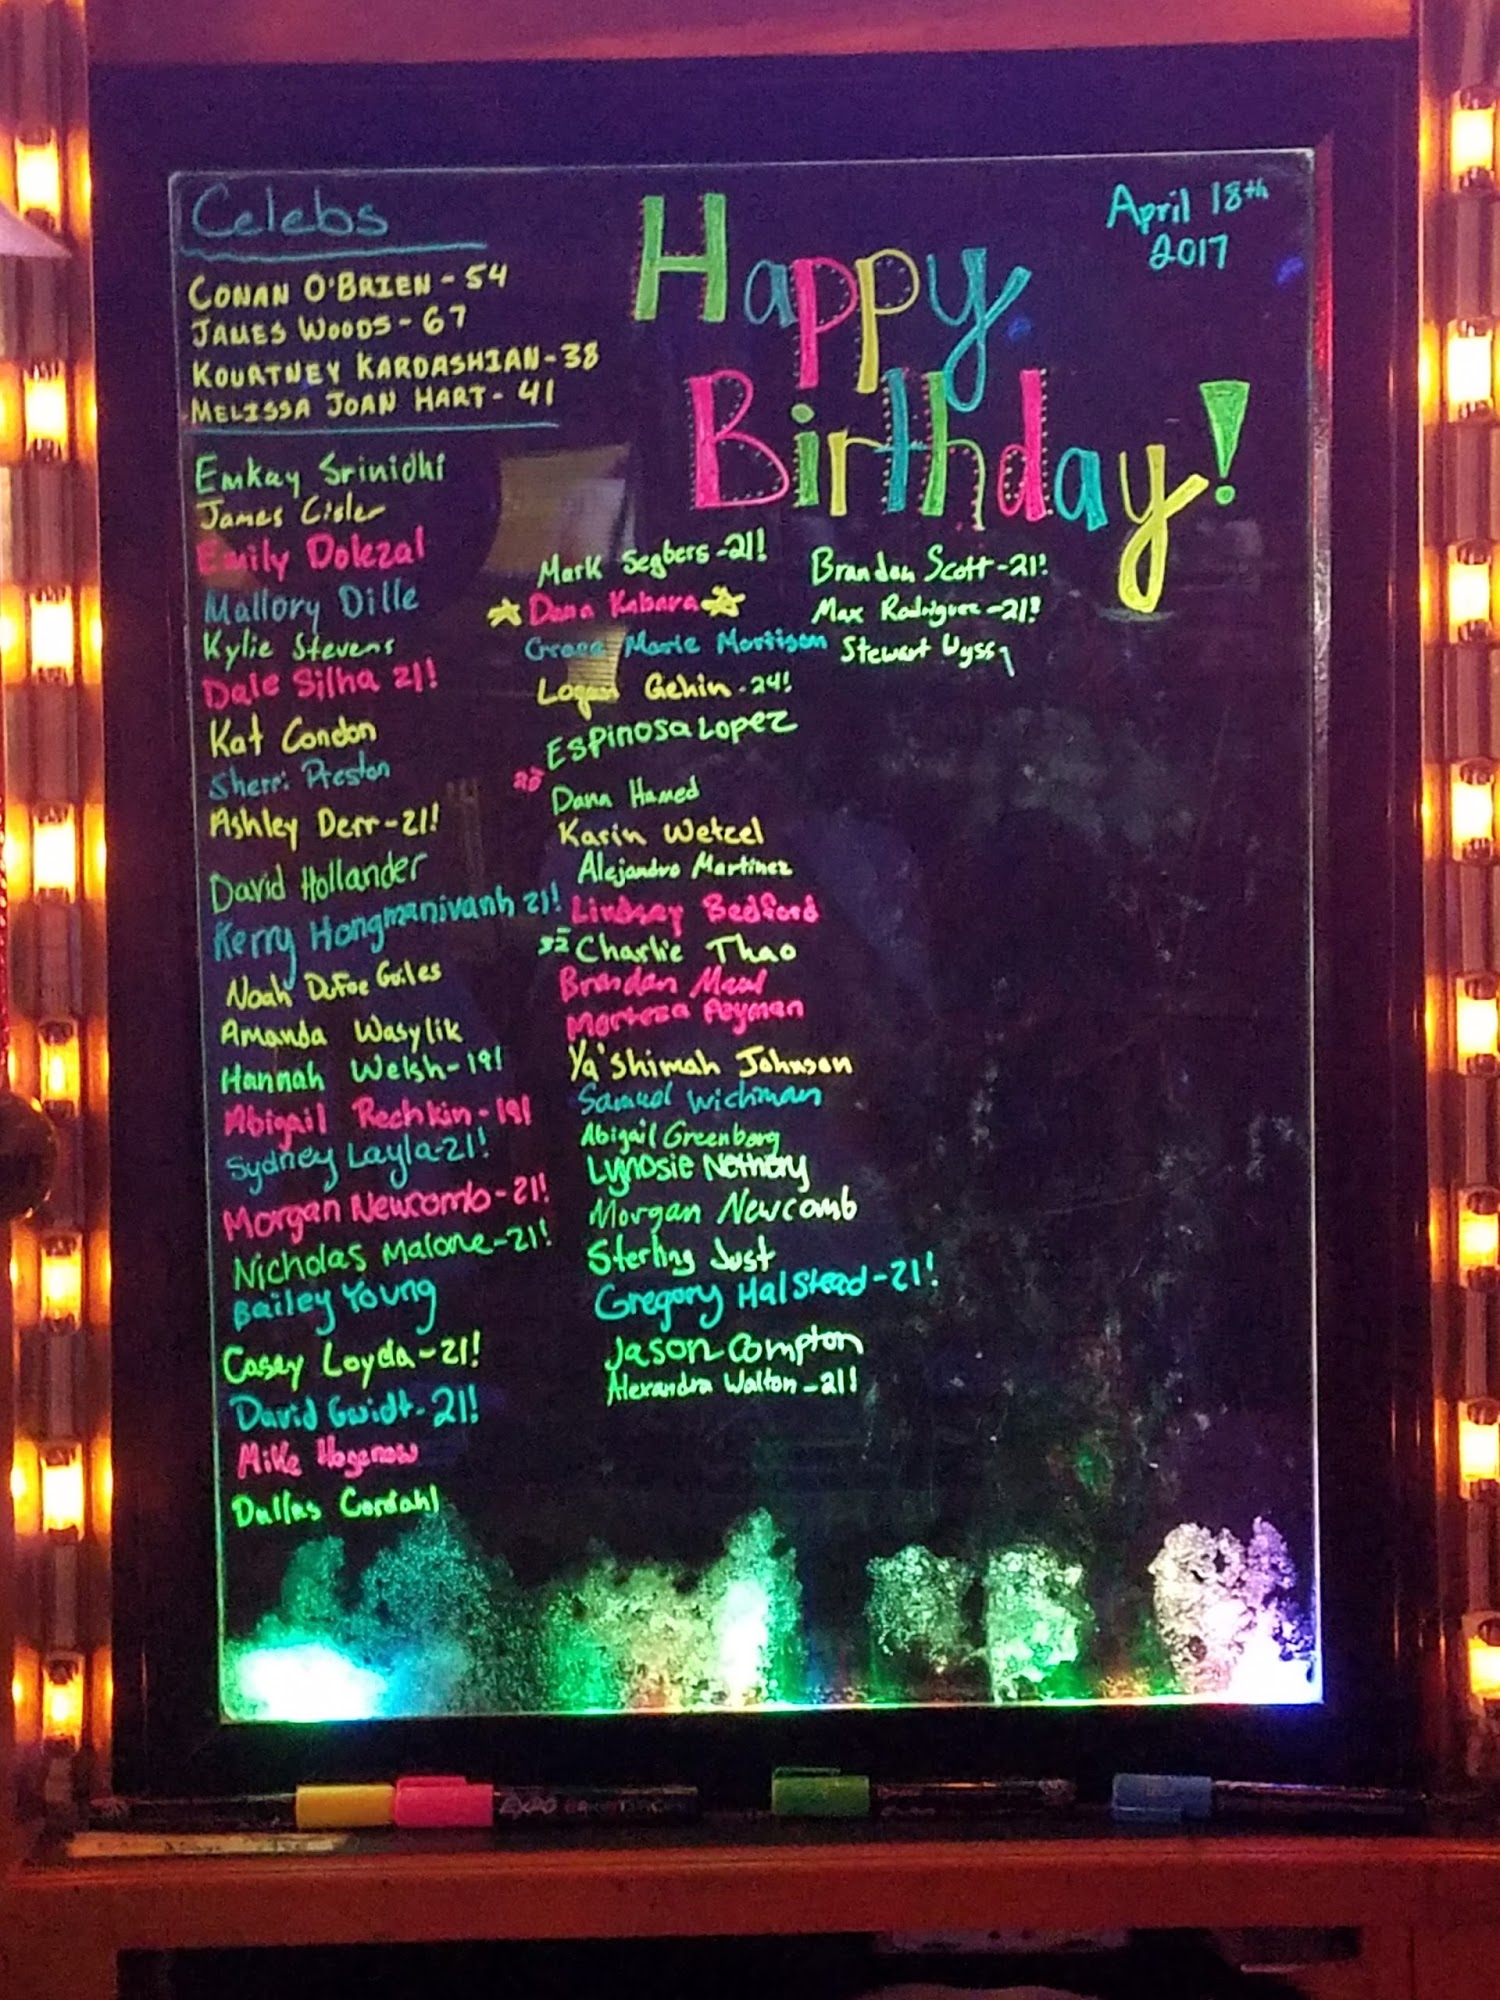 Celebs
CONAN O'BRIEN - 54
JAMES WOODS - 67
KOURTNEY KARDASHIAN - 38
MELISSA JOAN HART - 41
Happy
Birthday!
April 18th
2017
Emkay Srinidhi
James Cisler
Emily Dolezal
Mallory Dille
Kylie Stevens
Dale Silha 21!
Kat Condon
Sherri Preston
Ashley Derr-21!
David Hollander
Kerry Hongmanivanh 21!
Noah DuFoe Guiles
Amanda Wasylik
Hannah Welsh-19!
Abigail Rechkin-19!
Sydney Layla-21!
Morgan Newcomb-21!
Nicholas Malone-21!
Bailey Young
Casey Loyda-21!
David Gwidt-21!
Mike Hagenow
Dallas Cordahl
Mark Segbers-21!
Dana Kabara
Grace Marie Morrison
Logan Gehin-24!
Espinosa Lopez
Dana Hamed
Karin Wetzel
Alejandro Martinez
Lindsay Bedford
Charlie Thao
Brandan
Morteza Peyman
Ya'Shimah Johnson
Samuel Wichman
Abigail Greenberg
Lyndsie Nethery
Morgan Newcomb
Sterling Just
Gregory Halstead-21!
Jason Compton
Alexandra Walton-21!
Brandon Scott-21!
Max Rodriguez-21!
Stewart Wyss